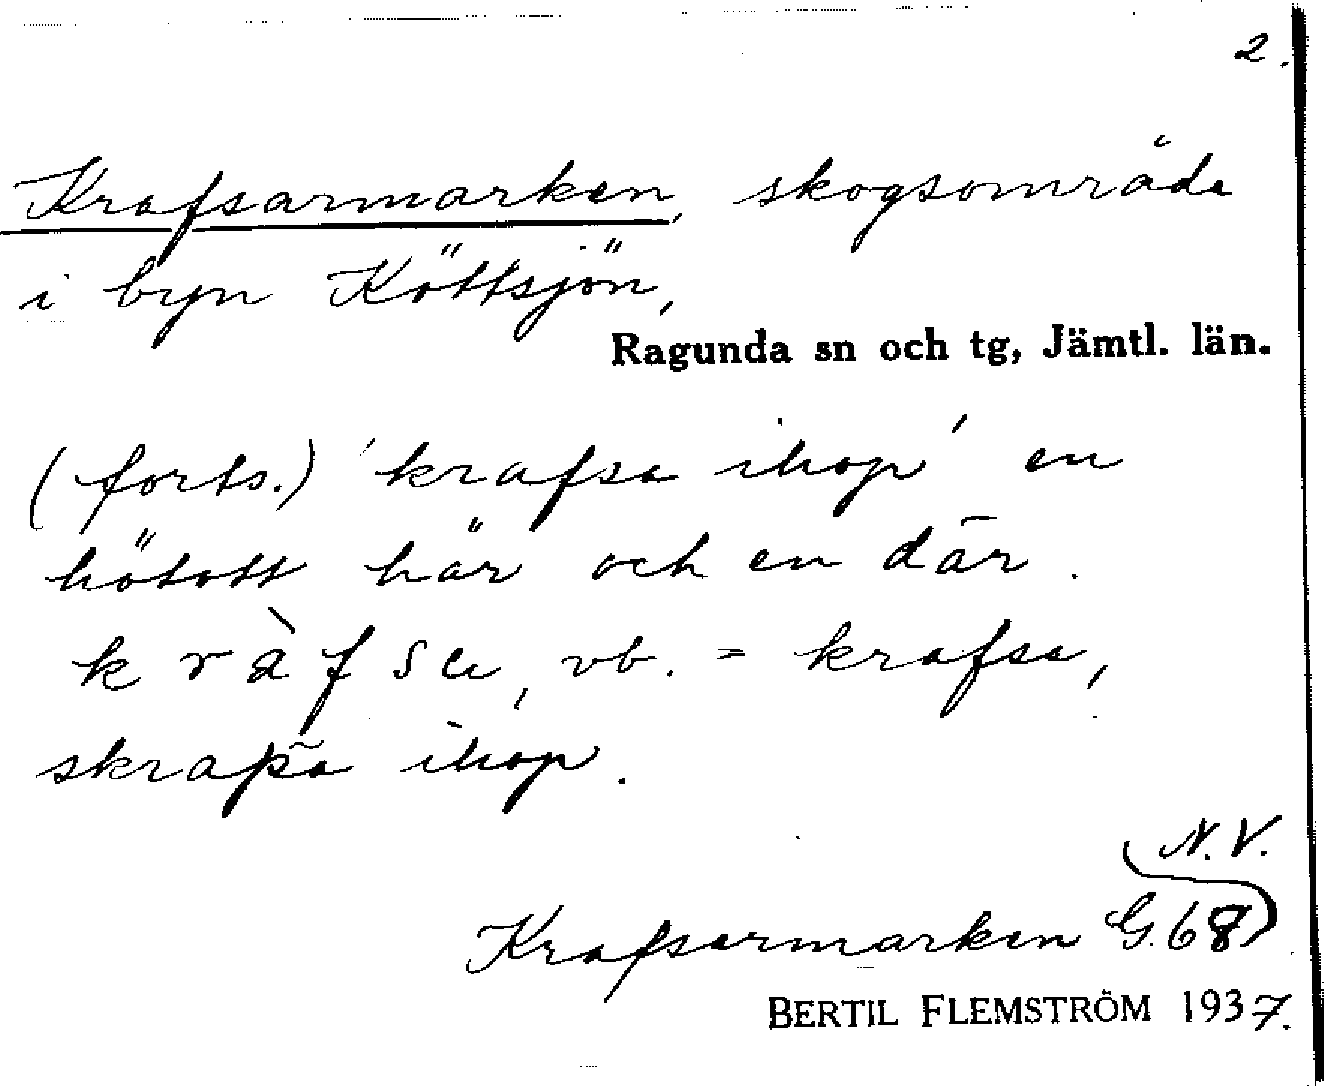 2.
Krafsarmarken, skogsområde
i byn Köttsjön,
Ragunda sn och tg, Jämtl. län.
(forts.) 'krafsa ihop' en
hötott här och en där.
kràfsa, vb. = krafsa,
skrapa ihop.
N.V.
Krafsarmarken G.68)
BERTIL FLEMSTRÖM 1937.